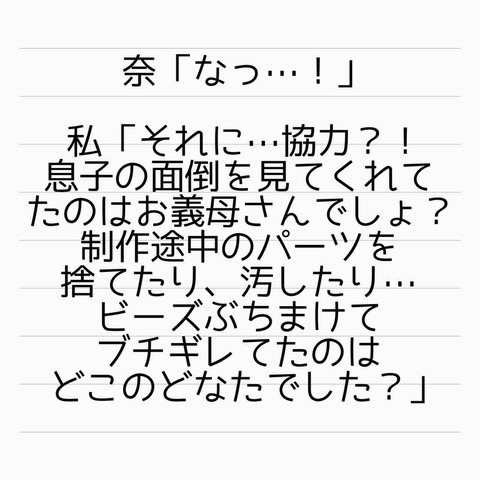 奈「なっ…！」
私「それに…協力？！
息子の面倒を見てくれて
たのはお義母さんでしょ？
制作途中のパーツを
捨てたり、汚したり…
ビーズぶちまけて
ブチギレてたのは
どこのどなたでした？」